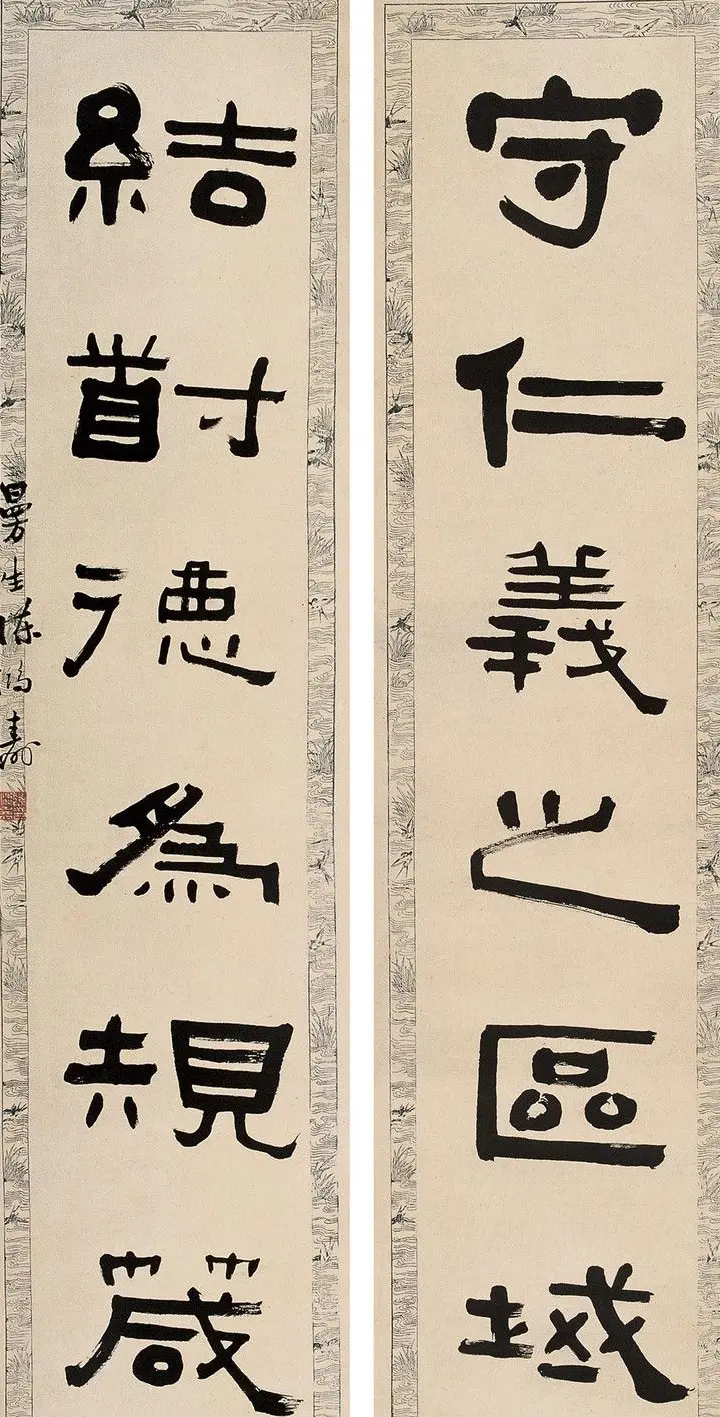 守仁義之區域
結道德爲規箴
曼生陳鴻壽